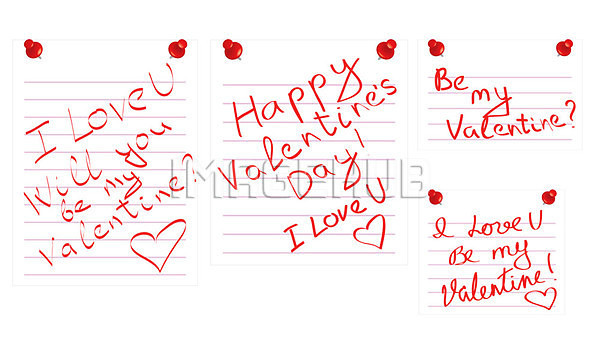 I Love U
Will you
be my
Valentine?
Happy
Valentine's
Day!
I Love U
Be
my
Valentine?
I Love U
Be my
Valentine!
IMAGEHUB